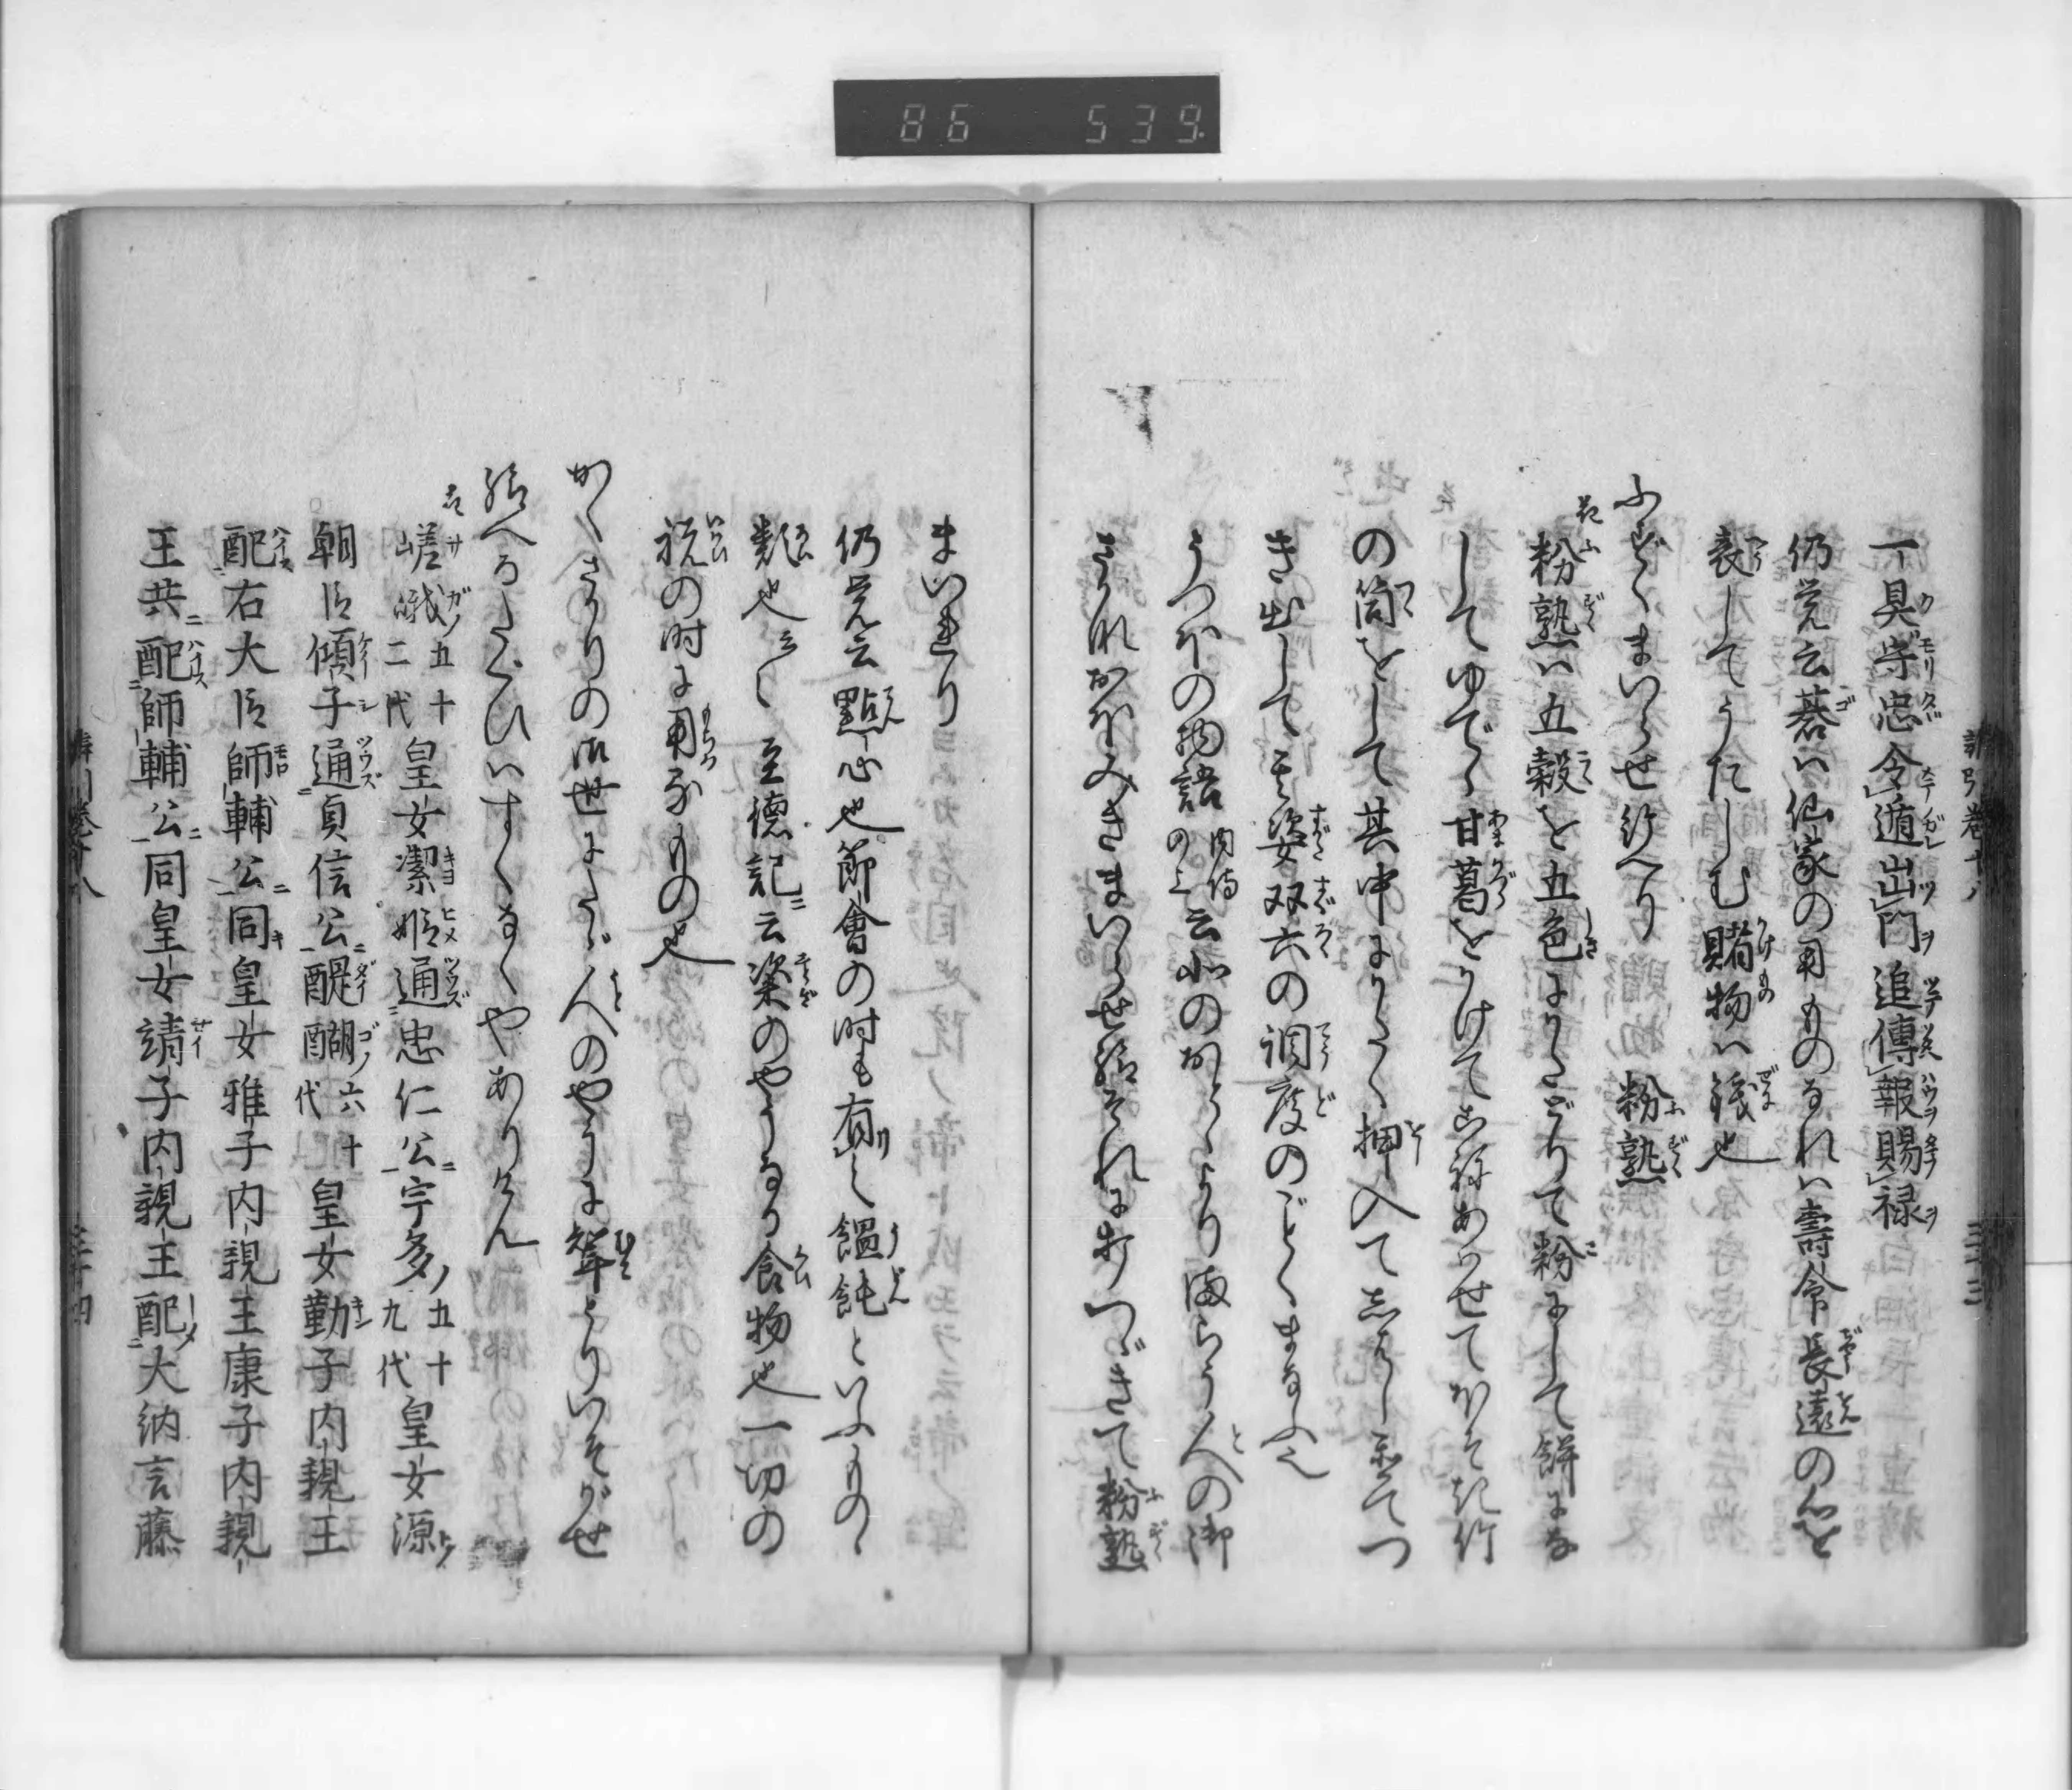 86 539
一具守忠令遁出門追傳報賜禄
仍覚云碁ハ仙家の用ものなれハ壽命長遠の心を
表してうたしむ賭物ハ銭也
ふずくまいらせ給へり 粉熟
花粉熟ハ五穀を五色にかたどりて粉にして餅にな
してゆでゝ甘葛をかけてこねあハせてほそき竹
の筒をして其中にかたく押入てしハし置てつ
き出して其姿双六の調度のごとくまなふ也
うつほの物語内侍のかみ云北のおとゝより女らう人への御
うハれおほみきまいらせ給それに打つゞきて粉熟
まいれり
仍覚云點心也節會の時も有し饂飩といふものゝ
類也云々至徳記云粢のやうなる食物也一切の
祝の時に用るもの也
かくさかりの御世にたゞ人のやうに聟とりいそがせ
給へるたぐひハすくなくやありけん
花嵯峨五十二代皇女潔姫通忠仁公宇多五十九代皇女源
朝臣傾子通貞信公醍醐六十代皇女勤子内親王
配右大臣師輔公同皇女雅子内親王康子内親
王共配師輔公同皇女靖子内親王配大納言藤
三十四